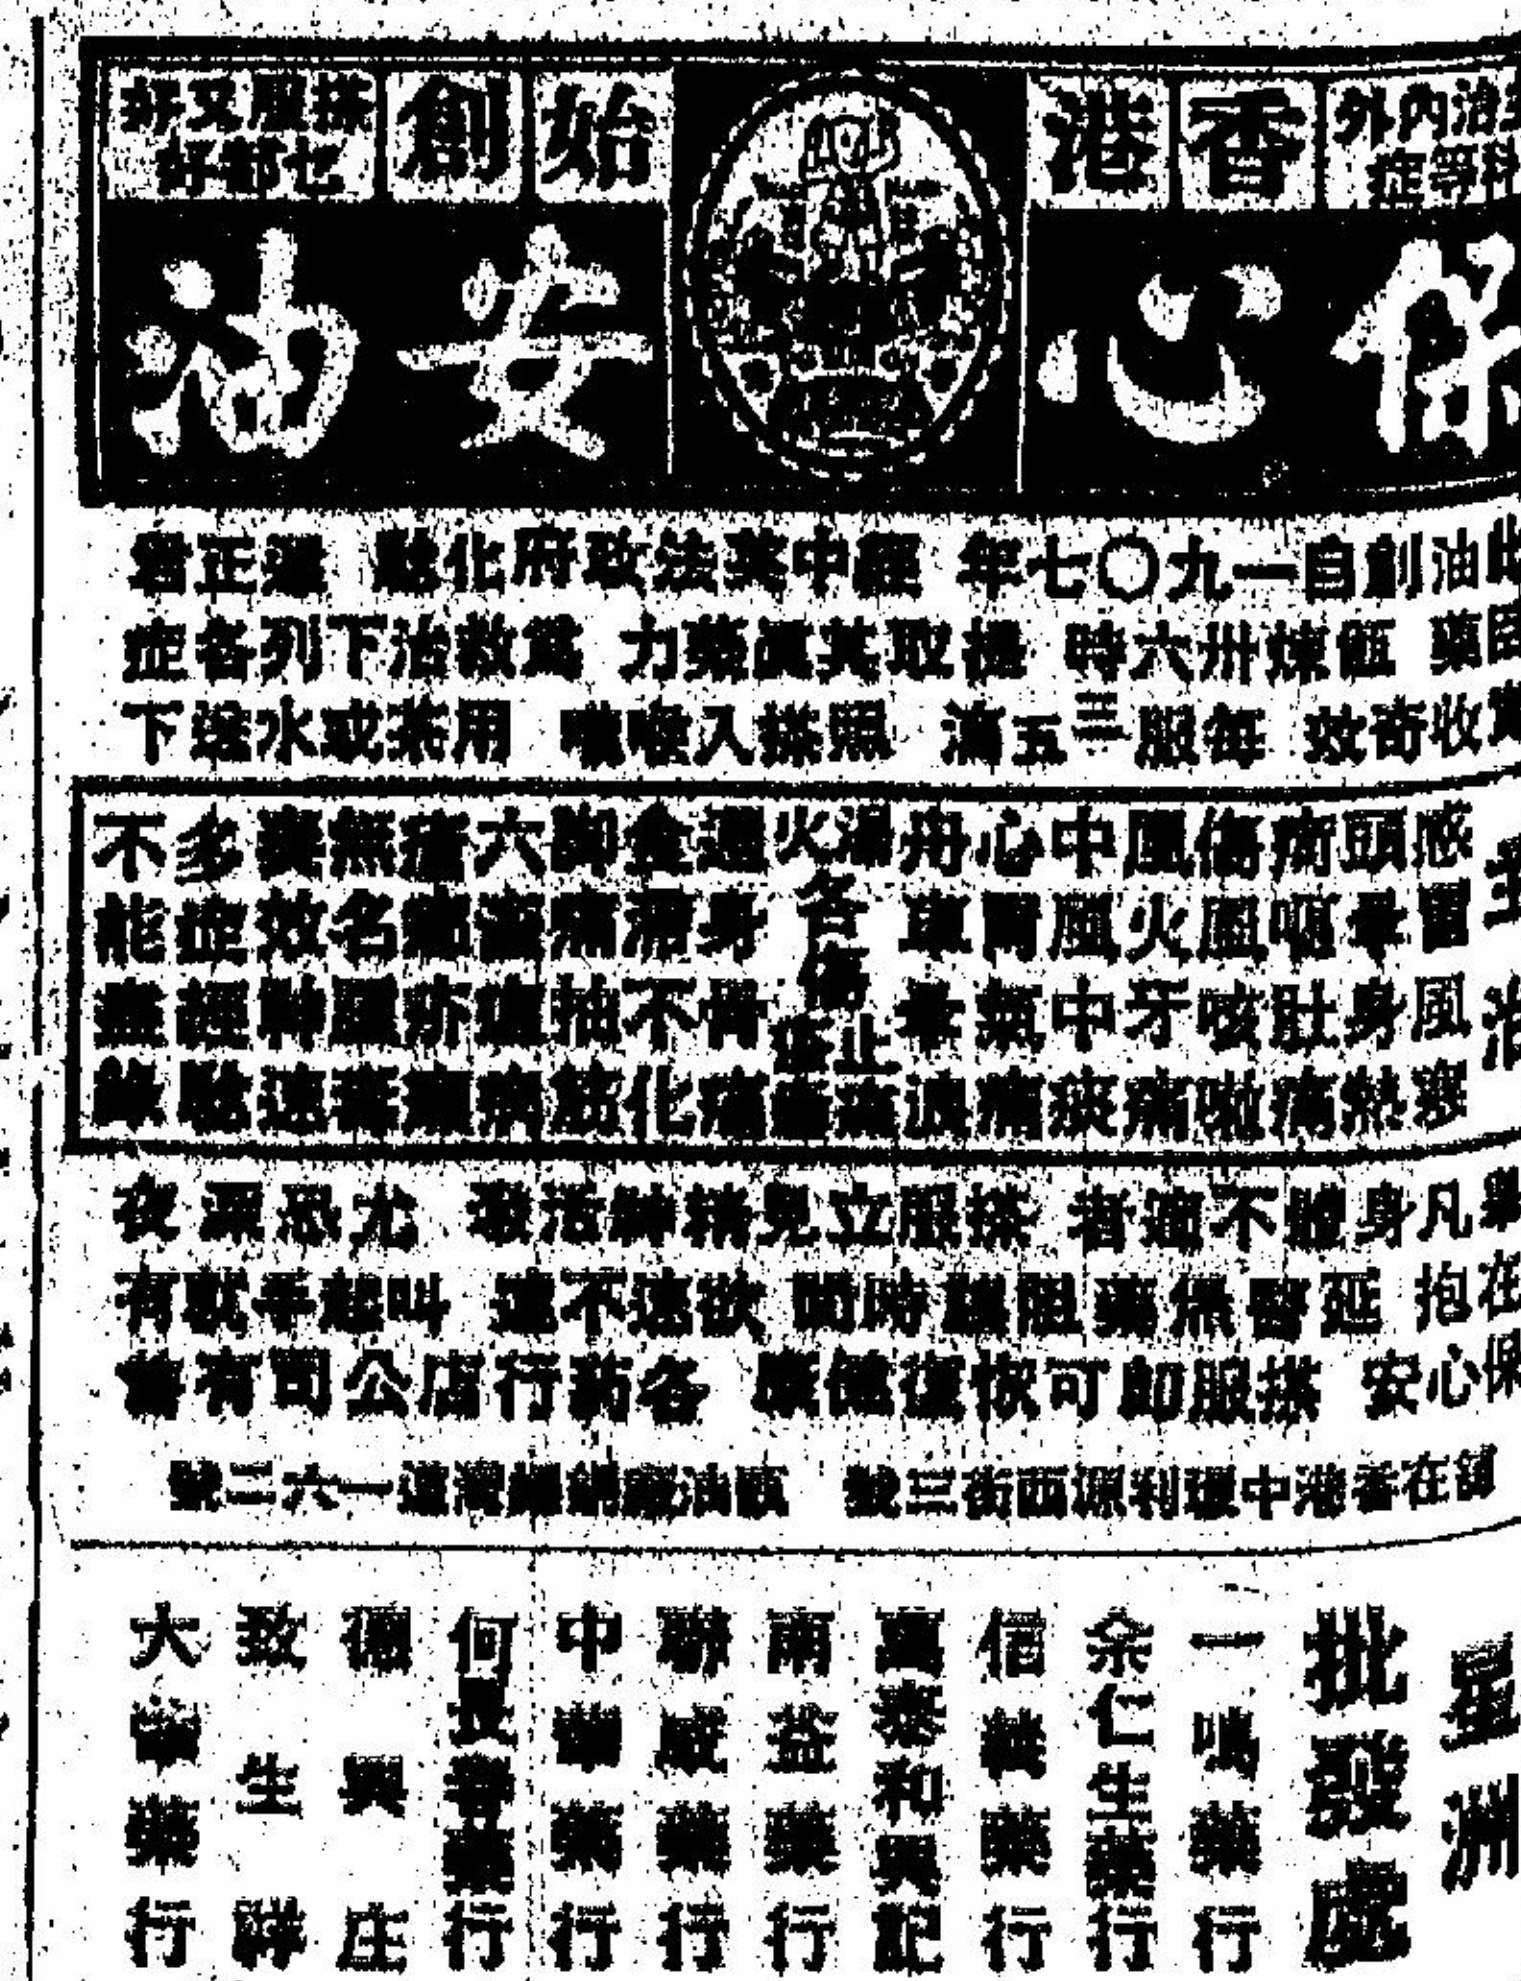 主治內外
科等症
香港
始創
搽服又好
乜都好
保心安油
此油創自一九〇七年 經中英法政府化驗 證正君
臣藥 甑煉卅六時 提取其真藥力 為救治下列各症
實收奇效 每服三五滴 照搽入喉嚨 用茶或水送下
主治
感冒風寒
頭暈身熱
嘔肚痛
傷風咳
風火牙痛
中風中痰
心胃氣痛
舟車暈浪
湯火各傷
止
週身骨痛
食滯不化
脚痛抽筋
無名腫毒
奏效神速
多症經驗
不能盡錄
舉凡身體不適者 搽服立見精神活潑 尤恐深夜
在抱 延醫無藥 時間 欲速不達 叫起手就有
保心安 搽服即可恢復健康 各葯行店公司有售
舖在香港中環利源西街三號 甑油廠銅鑼灣道一六二號
星洲
批發處
一鳴藥行
余仁生藥行
信義藥行
萬泰和興記
南益藥行
聯威藥行
中華藥行
何長春藥行
德興庄
致生祥
大華藥行